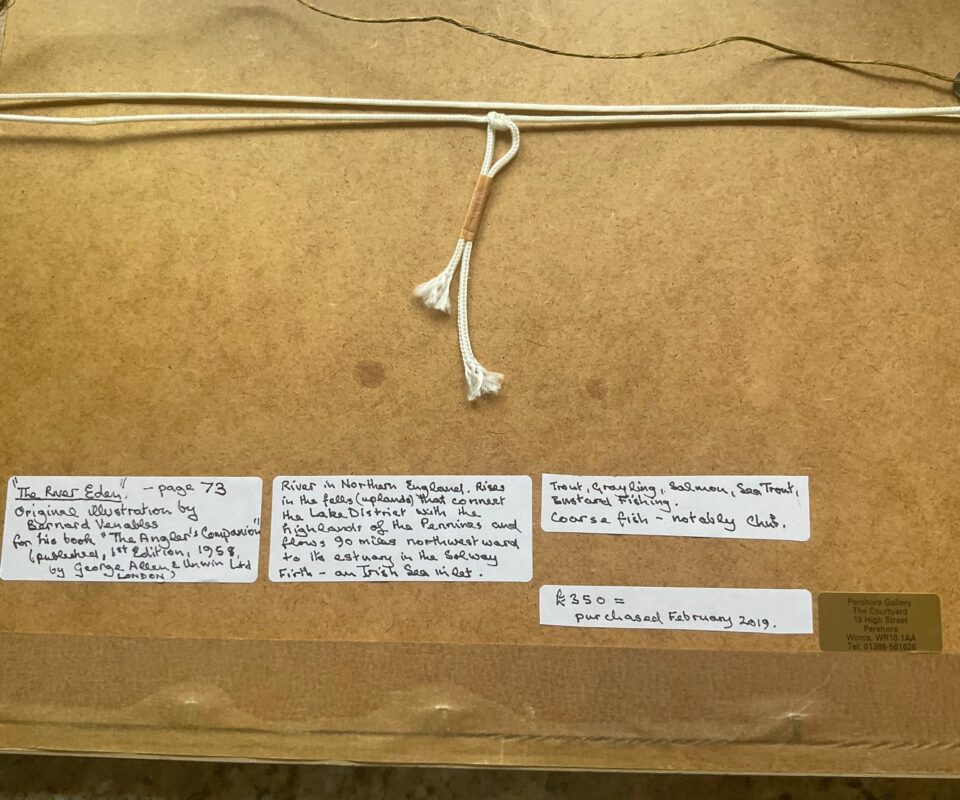 "The River Eden" - page 73
Original illustration by
Bernard Venables
for his book "The Angler's Companion"
(published, 1st Edition, 1958,
by George Allen & Unwin Ltd
LONDON)
River in Northern England. Rises
in the fells (uplands) that connect
the Lake District with the
highlands of the Pennines and
flows 90 miles northwestward
to its estuary in the Solway
Firth - an Irish Sea inlet.
Trout, Grayling, Salmon, Sea Trout,
Bustard Fishing.
Coarse fish - notably chub.
£350 =
purchased February 2019.
Pershore Gallery
The Courtyard
19 High Street
Pershore
Worcs. WR10 1AA
Tel: 01386-561626